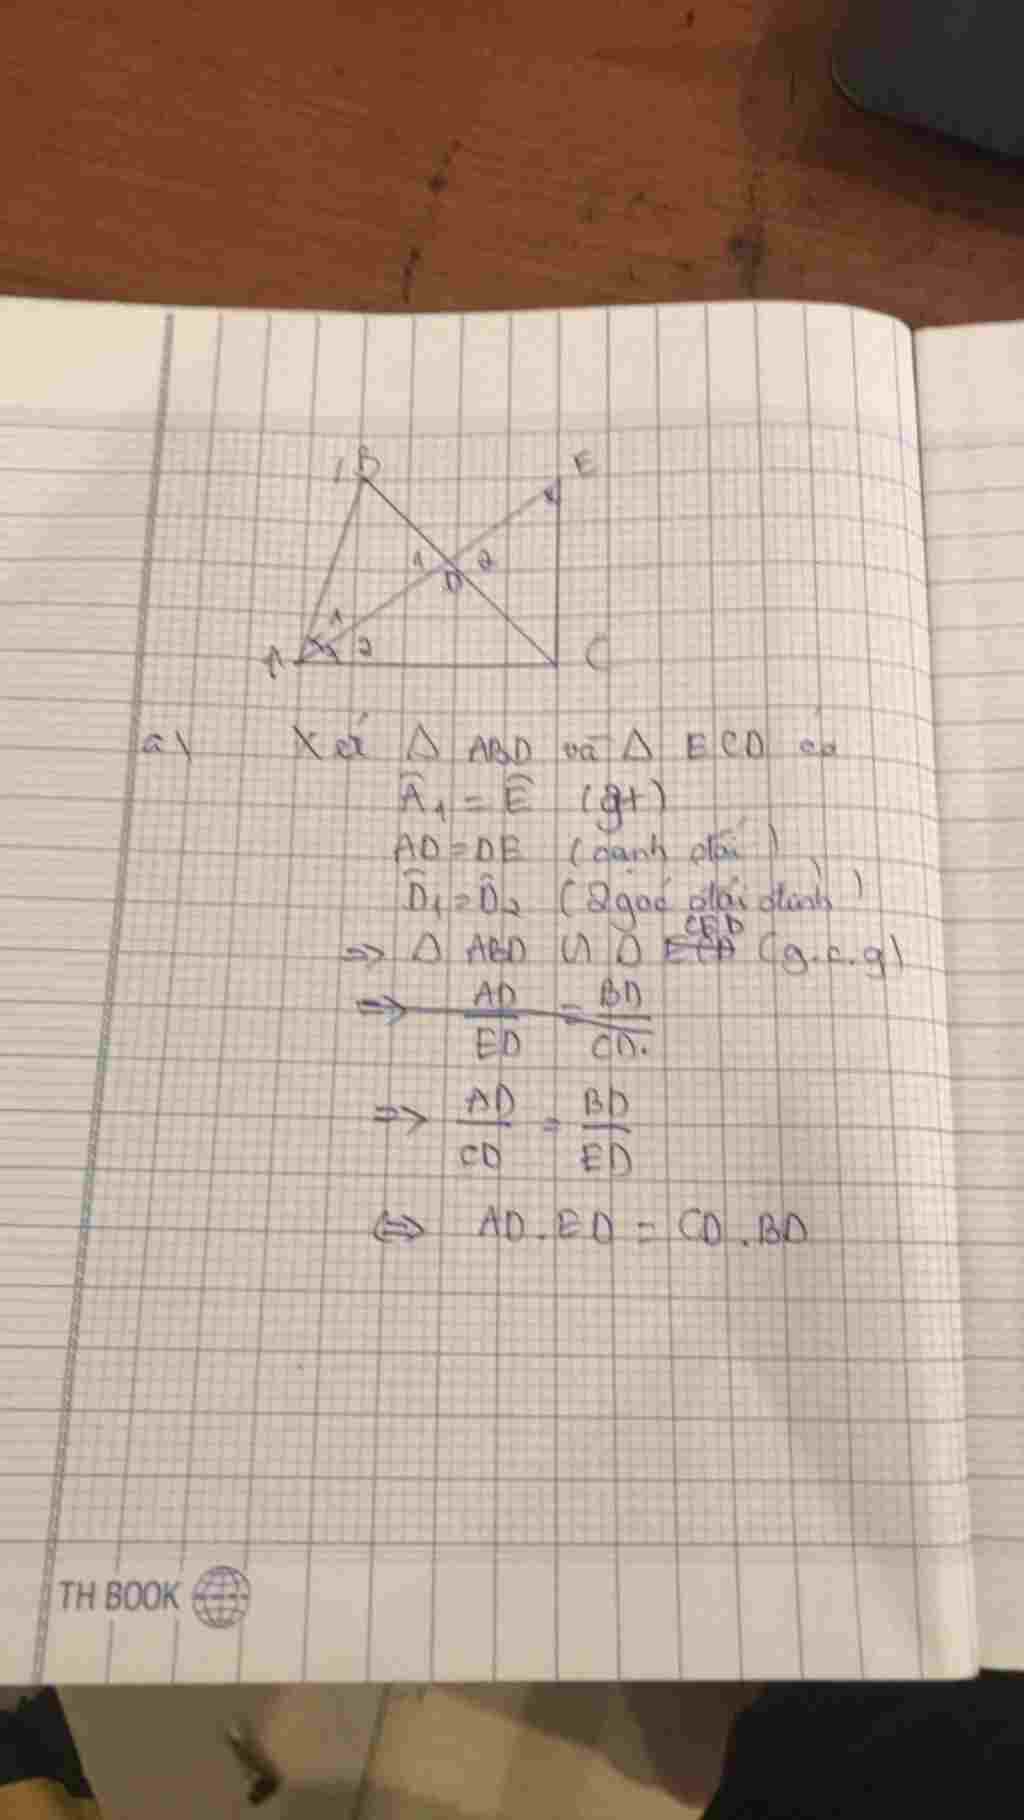 B E
1 D 2
1
A 2 C
a\ Xét Δ ABD và Δ ECD có
Â₁ = Ê (gt)
AD = DE (cạnh đối)
D̂₁ = D̂₂ (2 góc đối đỉnh)
CED
=> Δ ABD ∽ Δ ECD (g.c.g)
=> AD/ED = BD/CD.
=> AD/CD = BD/ED
<=> AD . ED = CD . BD
TH BOOK